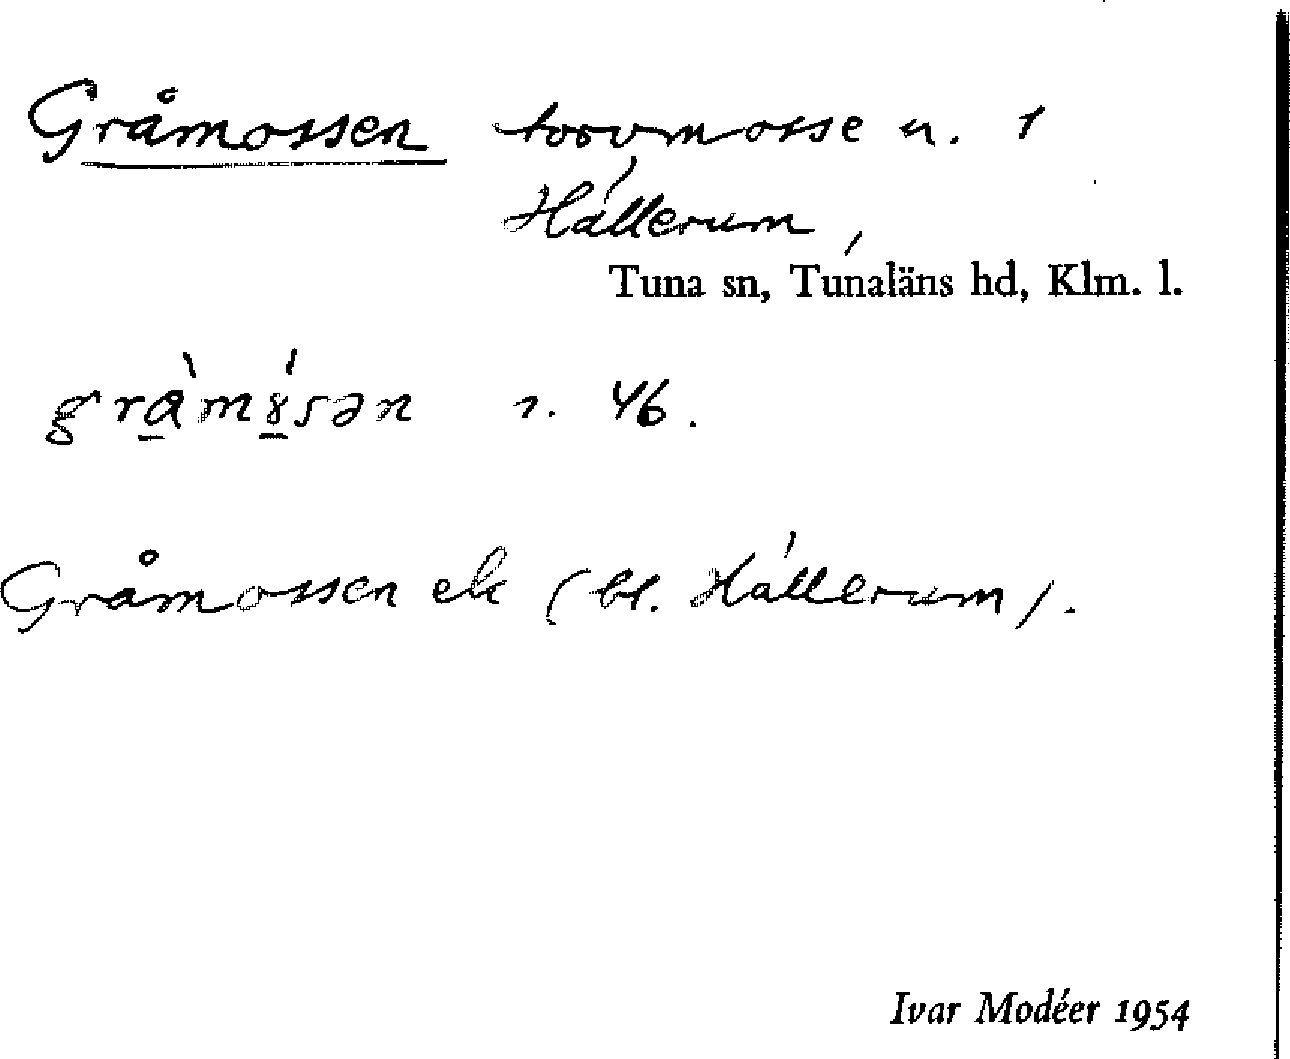 Gråmossen torvmosse n. 1
Hállerum,
Tuna sn, Tunaläns hd, Klm. l.
46.
Gråmossen ek (bl. Hállerum).
Ivar Modéer 1954